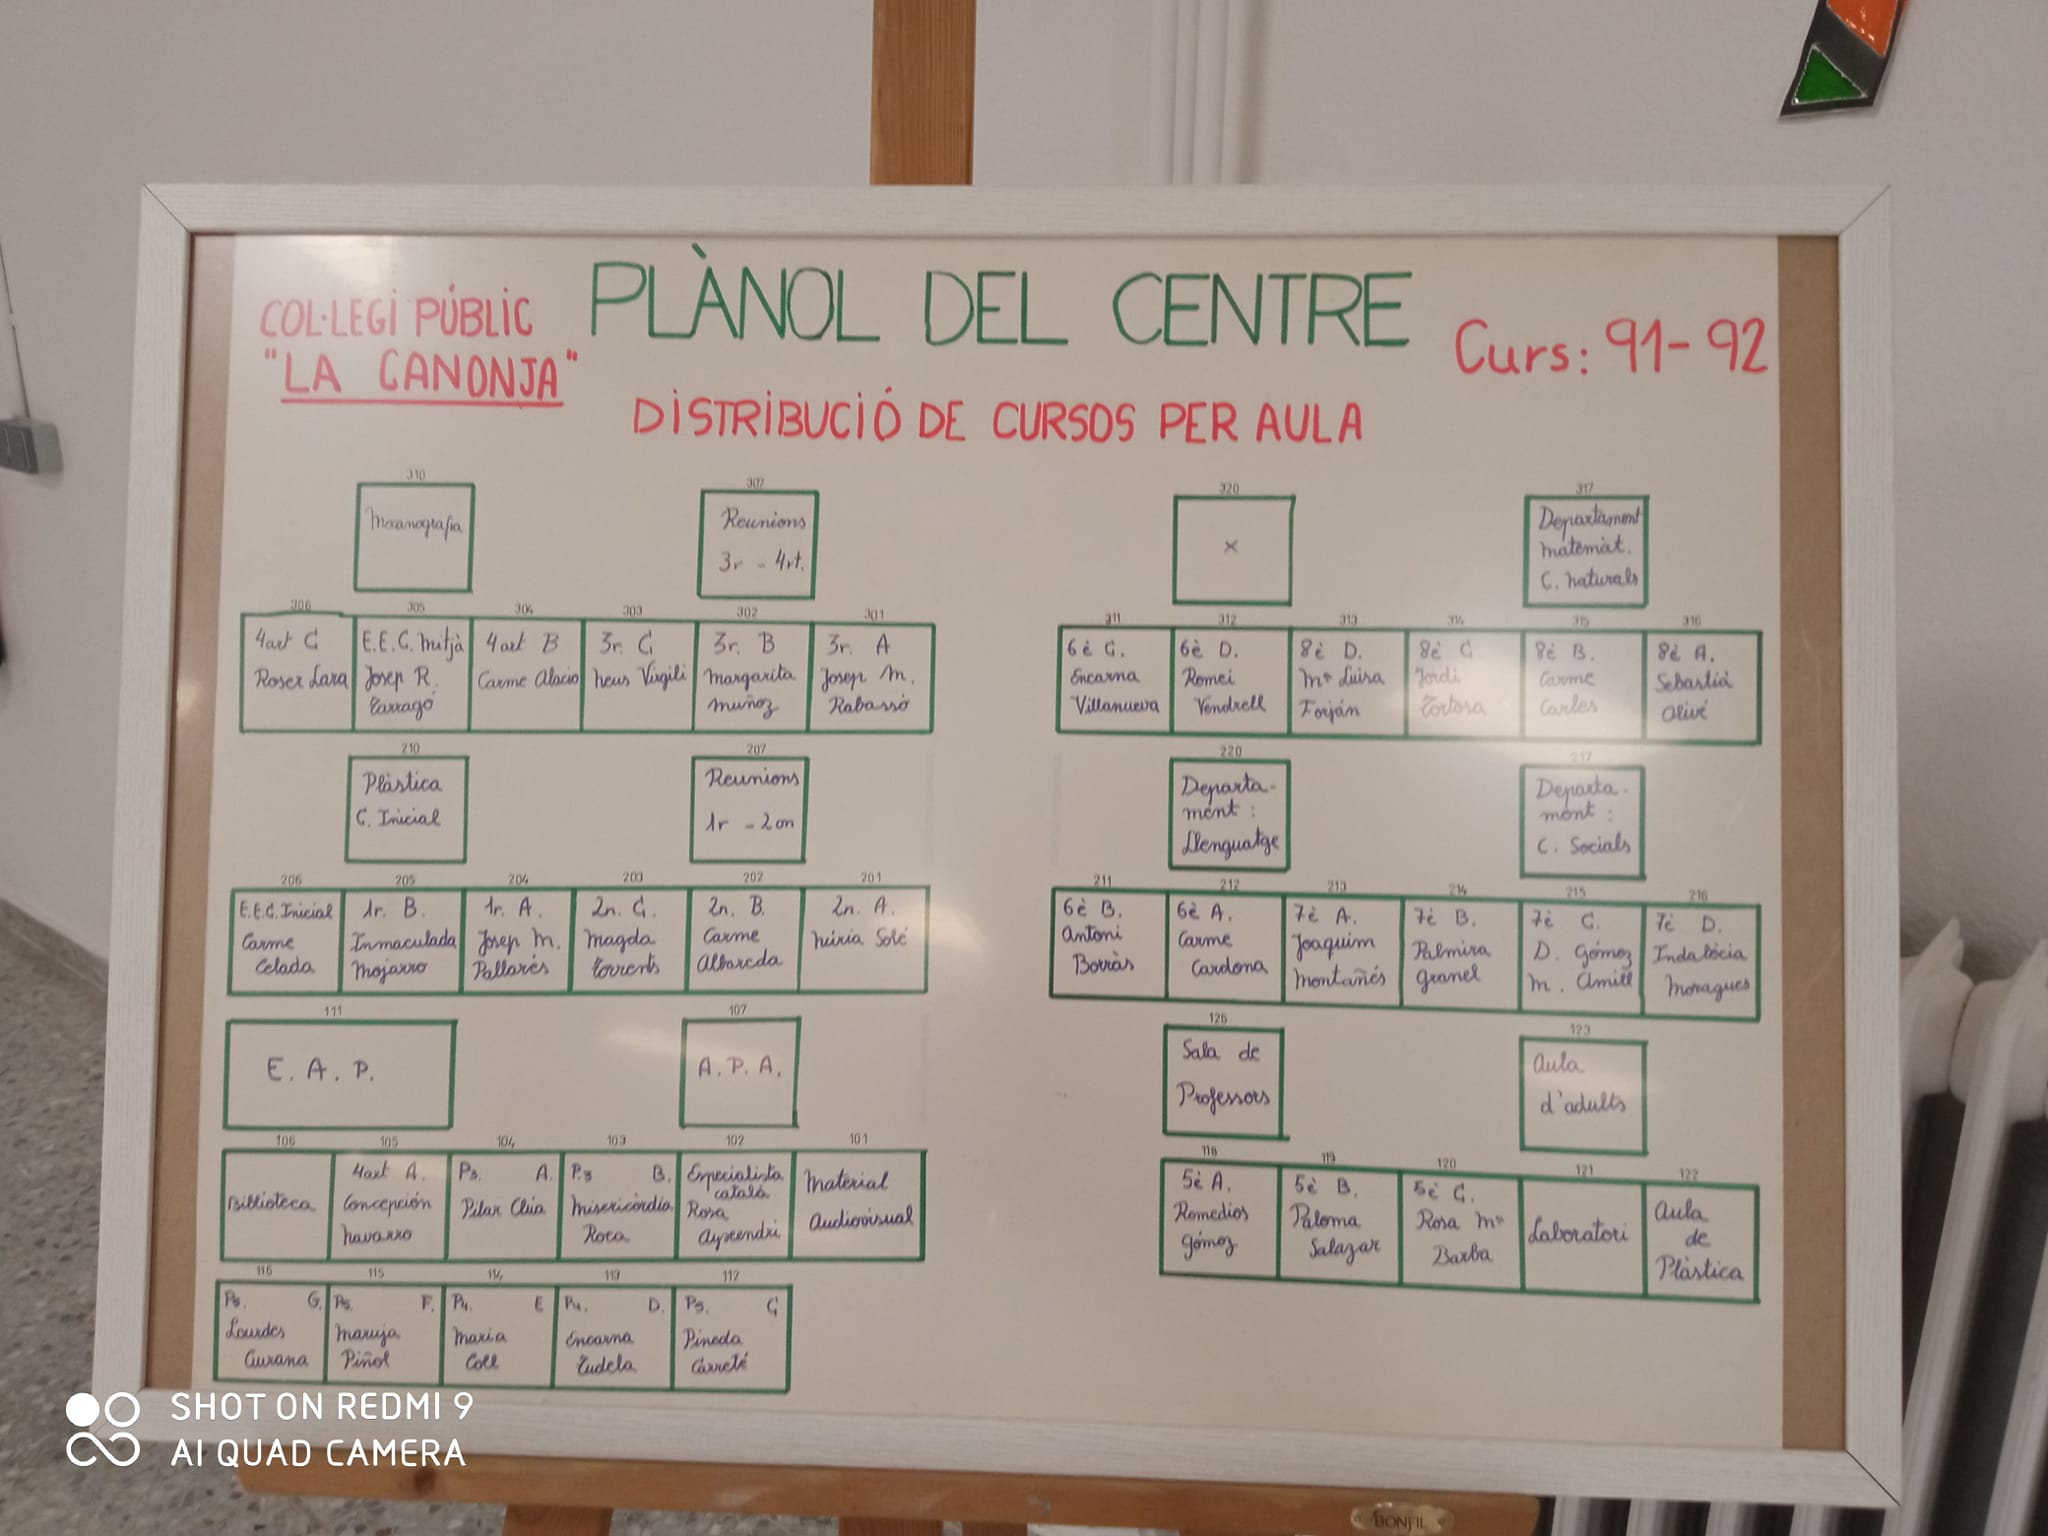 COL·LEGI PÚBLIC
"LA CANONJA"
PLÀNOL DEL CENTRE
Curs: 91-92
DISTRIBUCIÓ DE CURSOS PER AULA
310
Mecanografia
307
Reunions
3r - 4rt.
320
X
317
Departament
matemàt.
C. naturals
306
4art C
Roser Lara
305
E.E.C. Mitjà
Josep R.
Tarragó
304
4art B
Carme Alacio
303
3r. C
Neus Virgili
302
3r. B
Margarita
Muñoz
301
3r. A
Josep M.
Rabassó
311
6è C.
Encarna
Villanueva
312
6è D.
Romei
Vendrell
313
8è D.
Mª Luisa
Forján
314
8è C
Jordi
Tortosa
315
8è B.
Carme
Carles
316
8è A.
Sebastià
Olivé
210
Plàstica
C. Inicial
207
Reunions
1r - 2on
220
Departa-
ment:
Llenguatge
217
Departa-
ment:
C. Socials
206
E.E.C. Inicial
Carme
Celada
205
1r. B.
Inmaculada
Mojarro
204
1r. A.
Josep M.
Pallarés
203
2n. C.
Magda
Torrents
202
2n. B.
Carme
Albareda
201
2n. A.
Núria Solé
211
6è B.
Antoni
Borràs
212
6è A.
Carme
Cardona
213
7è A.
Joaquim
Montañés
214
7è B.
Palmira
Granel
215
7è C.
D. Gómez
M. Amill
216
7è D.
Indalècia
Moragues
111
E. A. P.
107
A. P. A.
126
Sala de
Professors
123
Aula
d'adults
106
Biblioteca
105
4art A.
Concepción
Navarro
104
P5. A.
Pilar Clúa
103
P.5 B.
Misericòrdia
Roca
102
Especialista
català
Rosa
Ayxendri
101
Material
Audiovisual
118
5è A.
Remedios
Gómez
119
5è B.
Paloma
Salazar
120
5è C.
Rosa Mª
Barba
121
Laboratori
122
Aula
de
Plàstica
116
P5. G.
Lourdes
115
P5. F.
Maruja
Piñol
114
P4. E
Maria
Coll
113
P4. D.
Encarna
Tudela
112
P5. C
Pineda
Carreté
SHOT ON REDMI 9
AI QUAD CAMERA
BONFIL